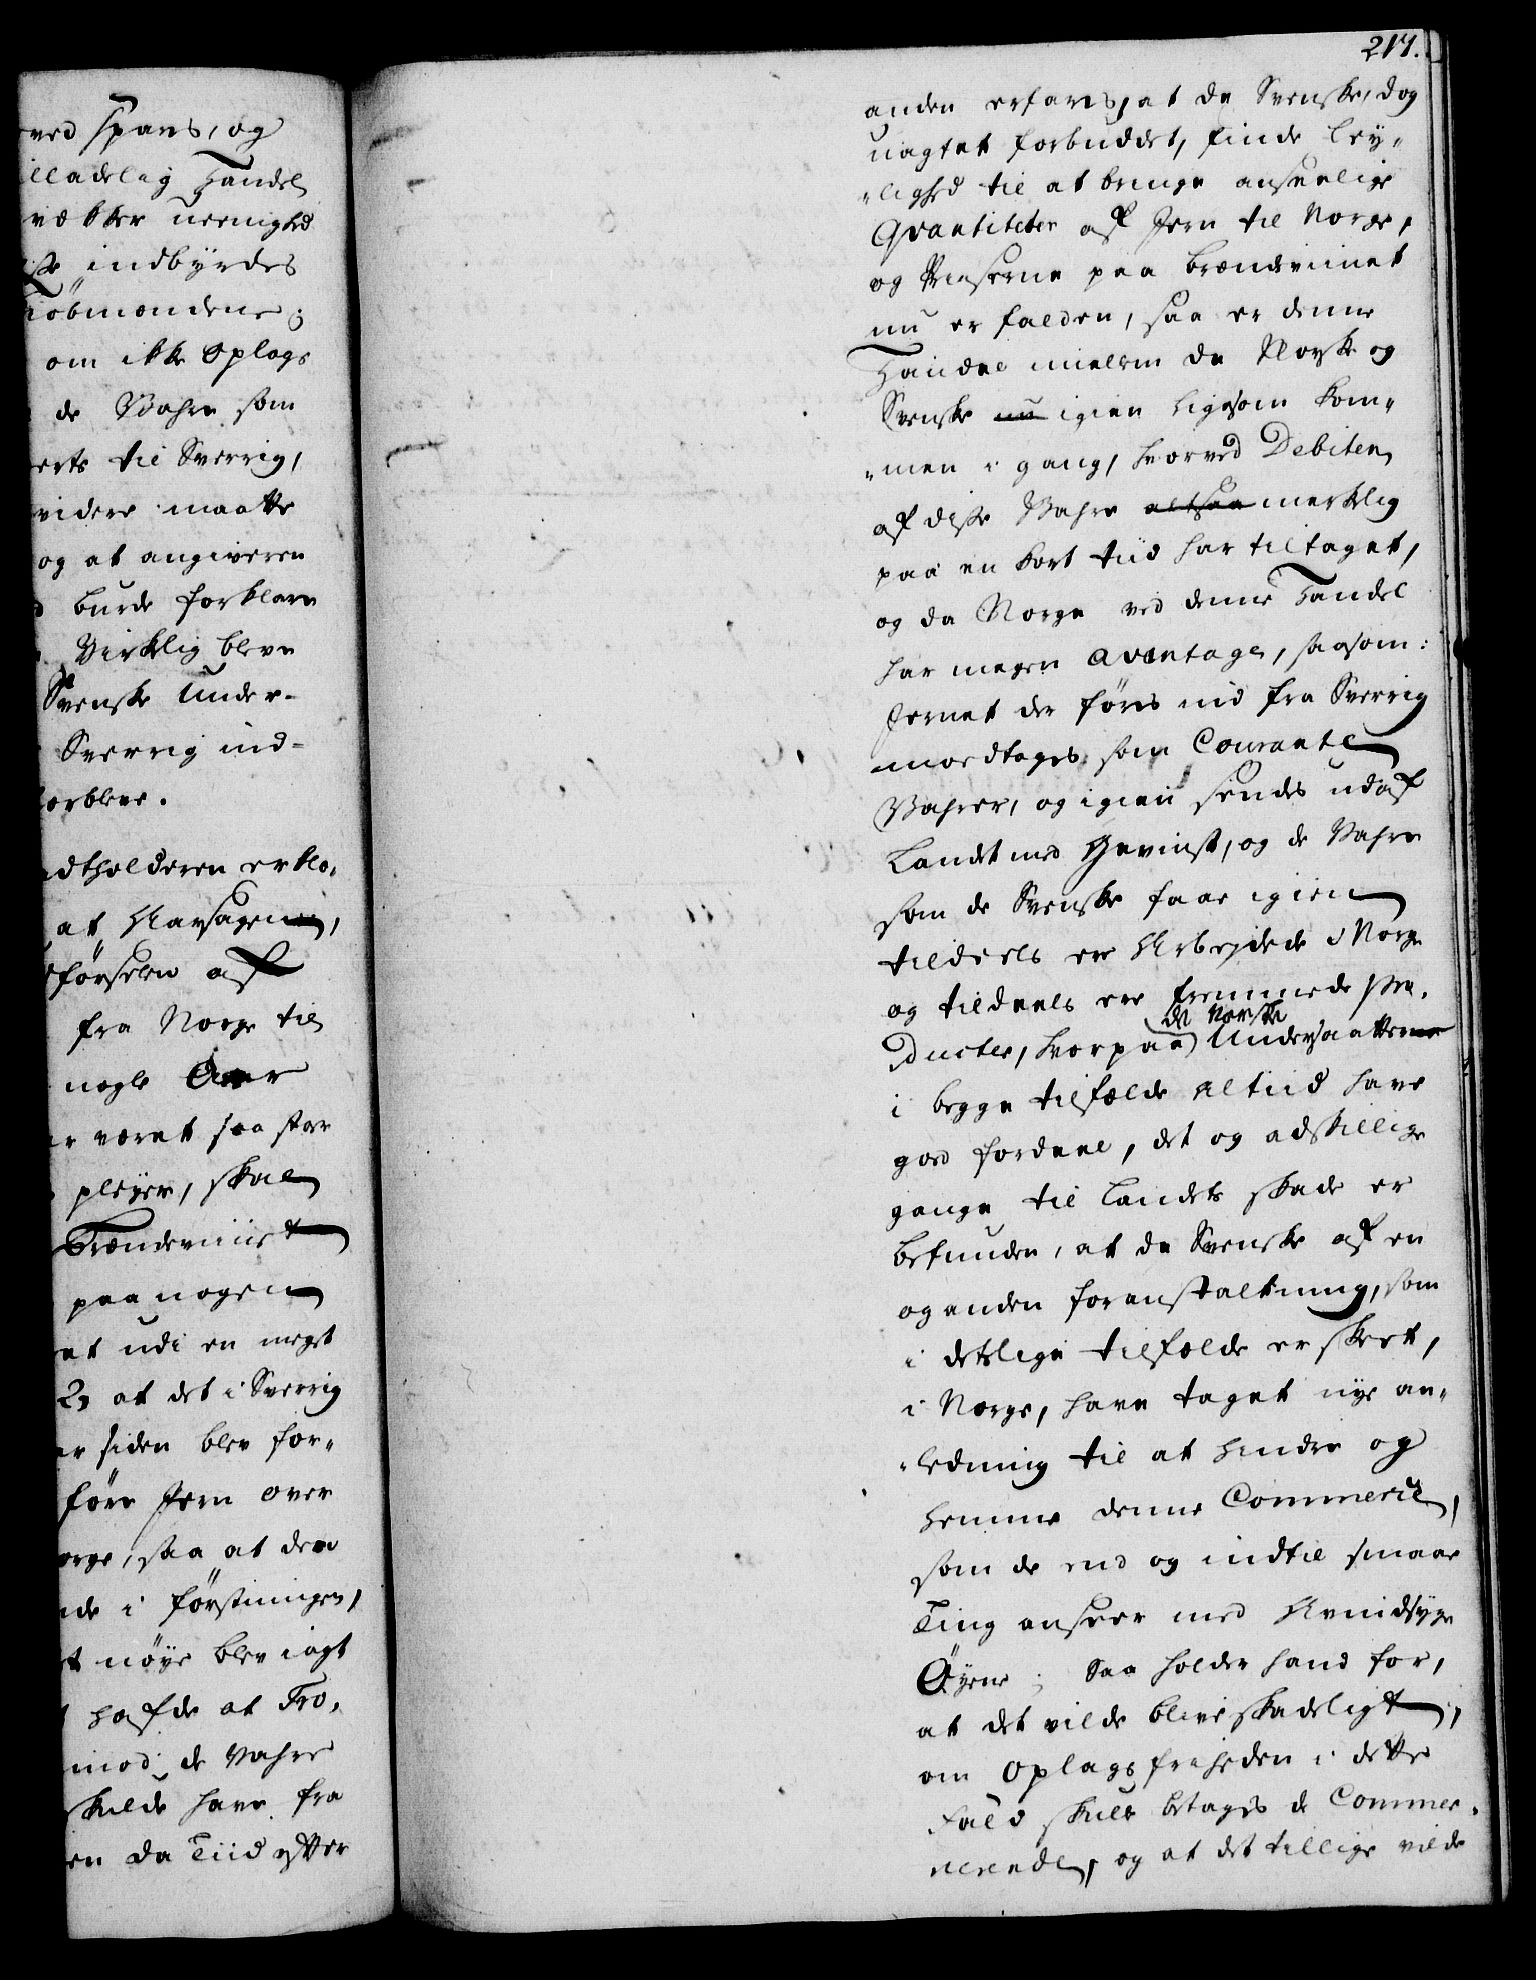 ved spares, og
illadelig Handel
vækker ueenighed
indbyrdes
iöbmændene;
om ikke Oplags
de Vahre som
erts til Sverrig,
videre maatte
og at angiveren
burde forklare
Virkelig bleve
Svenske Under-
Sverrig ind-
forbleve.
adtholderen erklæ,
at Aarsagen,
förselen af
fra Norge til
nogle Aar
været saa stor
pleyer, skal
Brændeviinet
paa nogen
et udi en meget
2, at det i Sverrig
er siden blev for-
före Jern over
orge, saa at den
de i förstningen,
et nöye blev iagt
hafde at Fro,
imod de Vahre
skulde have fra
en da Tiid efter
217.
anden erfares, at de Svenske, dog
uagtet forbuddet, finde ley-
-lighed til at bringe anseelige
Qvantiteter af Jern til Norge,
og Priserne paa brændeviinet
nu er falden, saa er denne
Handel imellem de Norske og
Svenske nu igien ligesom kom-
-men i gang, hvorved Debiten
af disse Vahre altsaa merkelig
paa en kort tiid har tiltaget,
og da Norge ved denne Handel
har megen avantage, saasom:
Jernet der föres ind fra Sverrig
modtages som Courante
Vahrer, og igien sendes ud af
Landet med Gevinst, og de Vahre
som de Svenske faar igien
tildeels er Arbeydede i Norge
og tildeels ere fremmede Pro-
de Norske
ducter, hvorpaa Undersaatterne
i begge tilfælde altiid have
god fordeel, det og adskillige
gange til Landets skade er
befunden, at de Svenske af en
og anden foranstaltning, som
i deslige tilfælde er skeet,
i Norge, have taget nye an-
-ledning til at hindre og
hemme denne Commerce,
som de end og indtil smaae
Ting anseer med Avindsyge
Öyene; Saa holder hand for,
at det vilde blive skadeligt,
om Oplags friheden i dette
Fald skulle betages de Commer-
cerende, og at det tillige vilde